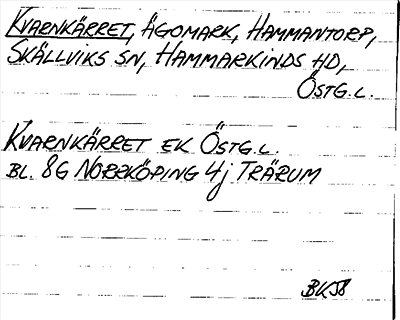 KVARNKÄRRET, ÄGOMARK, HAMMANTORP,
SKÄLLVIKS SN, HAMMARKINDS HD,
ÖSTG.L.
KVARNKÄRRET EK ÖSTG.L.
BL. 8G NORRKÖPING 4j TRÄRUM
BK58